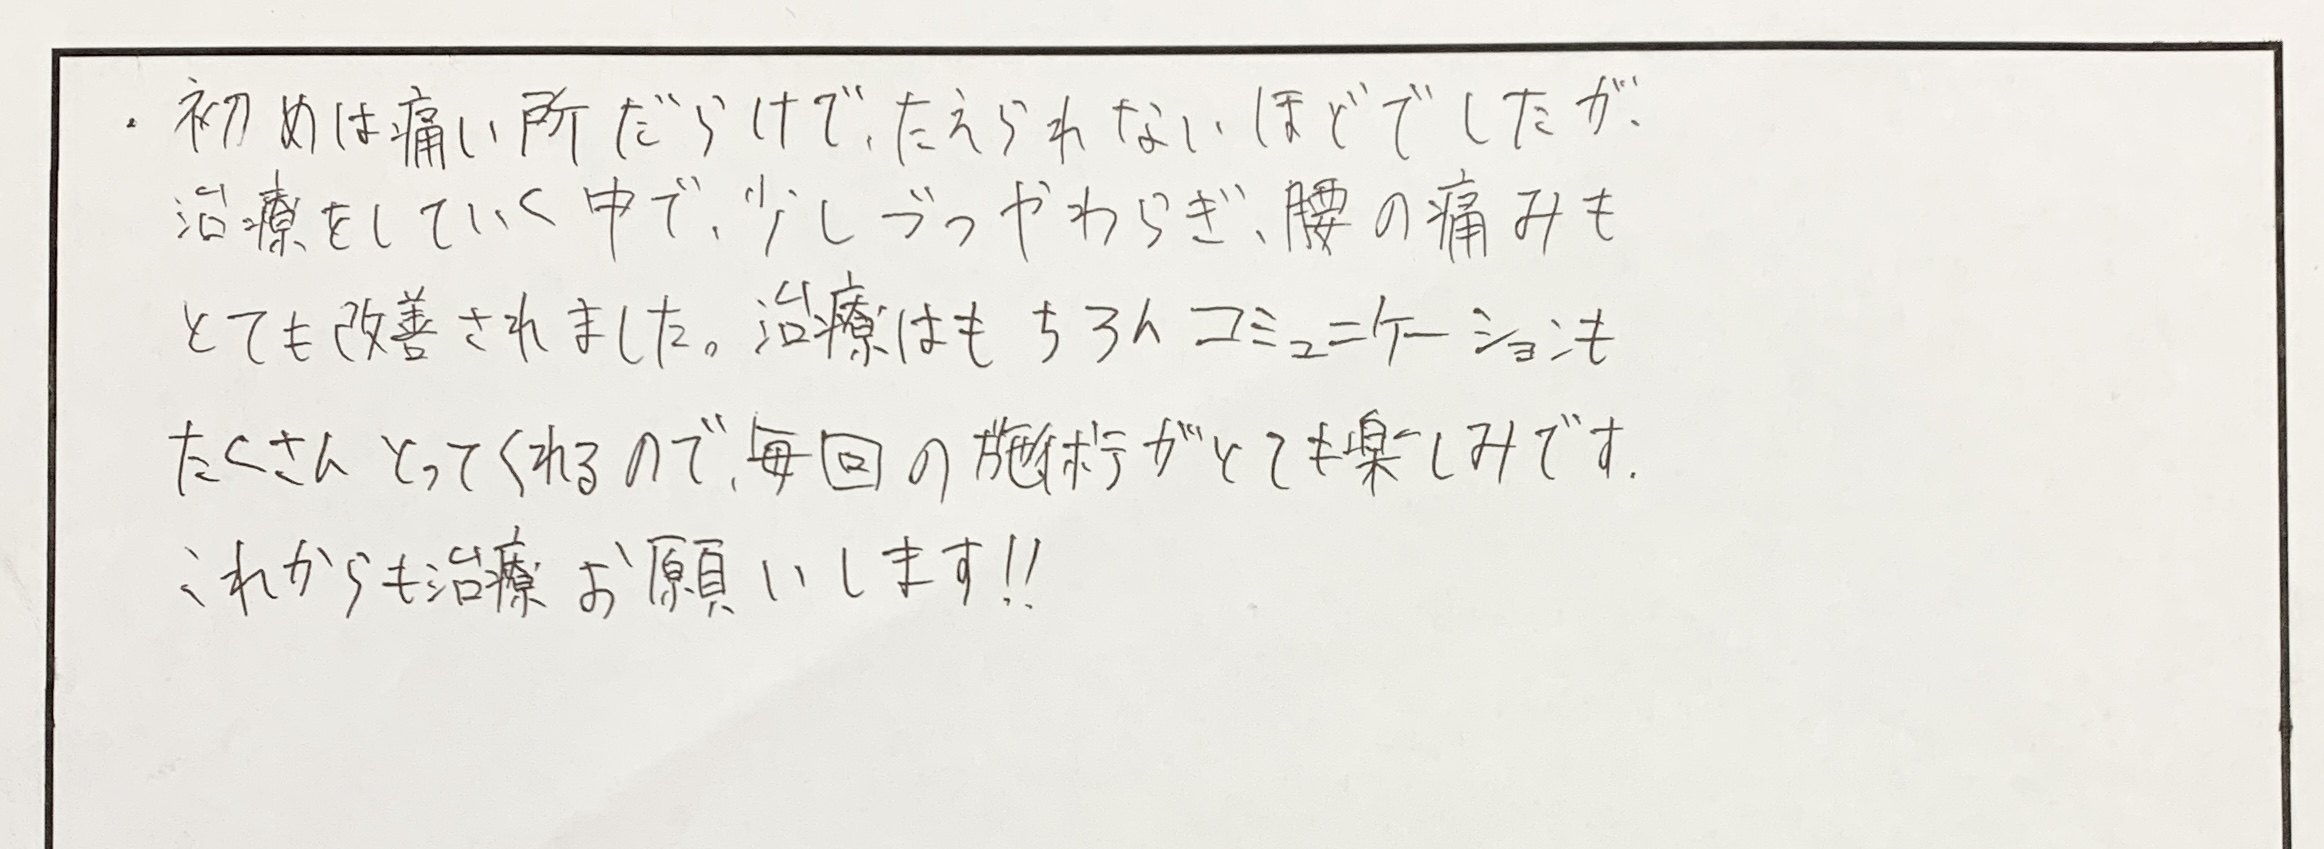 ・初めは痛い所だらけで、たえられないほどでしたが、
治療をしていく中で、少しづつやわらぎ、腰の痛みも
とても改善されました。治療はもちろんコミュニケーションも
たくさんとってくれるので、毎回の施術がとても楽しみです。
これからも治療お願いします!!